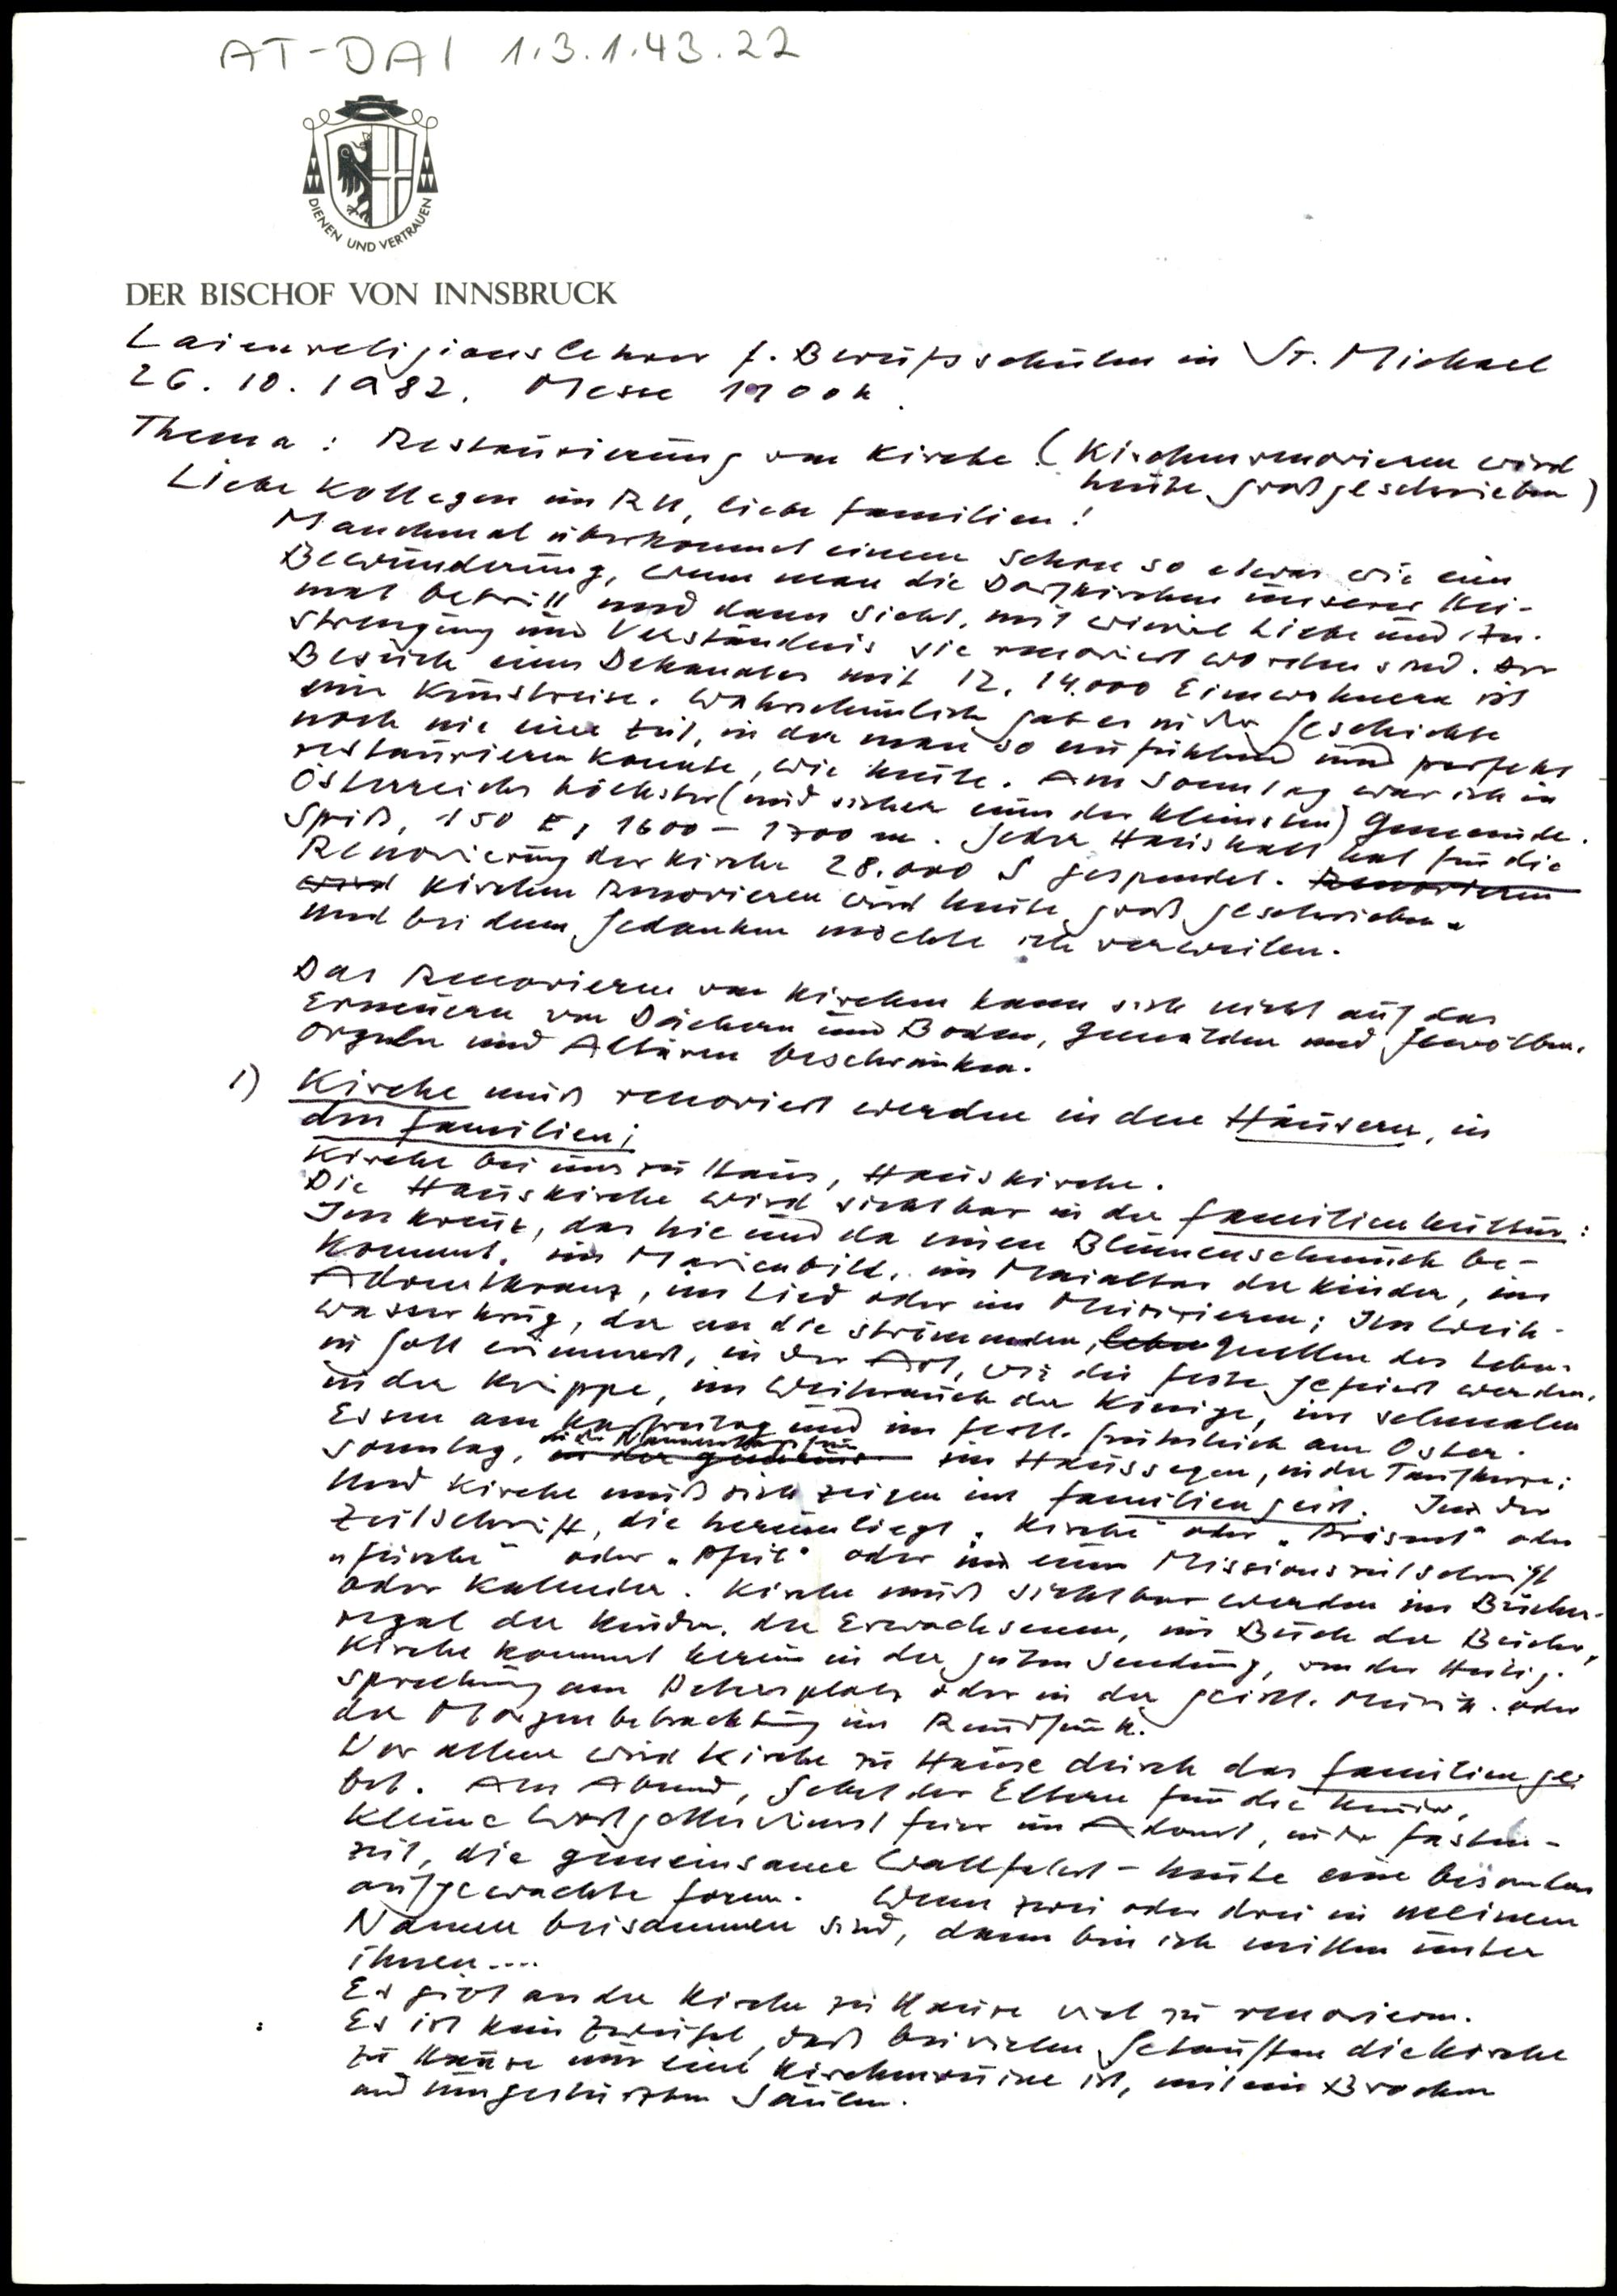 AT-DAI 1.3.1.43.22
DIENEN UND VERTRAUEN
DER BISCHOF VON INNSBRUCK
Laienreligionslehrer f. Berufsschulen in St. Michael
26. 10. 1982. Messe 1100h
Thema: Restaurierung von Kirche (Kirchenrenovieren wird
heute großgeschrieben)
Liebe Kollegen im RU, liebe Familien!
Manchmal überkommt einem schon so etwas wie eine
Bewunderung, wenn man die Dorfkirchen unserer Hei-
mat betritt und dann sieht, mit wieviel Liebe und An-
strengung und Verständnis sie renoviert worden sind. Der
Besuch eines Dekanates mit 12, 14.000 Einwohnern ist
eine Kunstreise. Wahrscheinlich gab es in der Geschichte
noch nie eine Zeit, in der man so einfühlend und perfekt
restaurieren konnte, wie heute. Am Sonntag war ich in
Österreichs höchster (und sicher einer der kleinsten) Gemeinde.
Spiß, 150 E, 1600 - 1700 m. Jeder Haushalt hat für die
Renovierung der Kirche 28.000 S gespendet. Renovieren
wird Kirchen Renovieren wird heute groß geschrieben.
Und bei dem Gedanken möchte ich verweilen.
Das Renovieren von Kirchen kann sich nicht auf das
Erneuern von Dächern und Boden, Gemälden und Gewölben,
Orgeln und Altären beschränken.
1) Kirche muß renoviert werden in den Häusern, in
den Familien;
Kirche bei uns zu Haus, Hauskirche.
Die Hauskirche wird sichtbar in der Familienkultur:
Im Kreuz, das hie und da einen Blumenschmuck be-
kommt, im Marienbild, im Maialtar der Kinder, im
Adventkranz, im Lied oder im Musizieren; Im Weih-
wasserkrug, der an die strömenden, Quellen des Lebens
in Gott erinnert, in der Art, wie die Feste gefeiert werden,
in der Krippe, im Weihrauch der Könige, im schmalen
Essen am Karfreitag und im festl. Frühstück am Oster-
sonntag, in der Namenstagsfeier im Haussegen, in der Taufkerze;
Und Kirche muß sich zeigen im Familiengeist. In der
Zeitschrift, die herumliegt, "Kirche" oder "Präsent" oder
"Furche" oder "Pfeil" oder in einer Missionszeitschrift
oder Kalender. Kirche muß sichtbar werden im Bücher-
regal der Kinder, der Erwachsenen, im Buch der Bücher,
Kirche kommt herein in der guten Sendung, von der Heilig-
sprechung am Petersplatz oder in der geistl. Musik oder
der Morgenbetrachtung im Rundfunk.
Vor allem wird Kirche zu Hause durch das Familienge-
bet. Am Abend, Gebet der Eltern für die Kinder,
kleine Wortgottesdienstfeier im Advent, in der Fasten-
zeit, die gemeinsame Wallfahrt - heute eine besonders
aufgewachte Form. Wenn zwei oder drei in meinem
Namen beisammen sind, dann bin ich mitten unter
ihnen....
Es gibt an der Kirche zu Hause viel zu renovieren.
Es ist kein Zweifel, daß bei vielen Getauften die Kirche
zu Hause nur eine Kirchenruine ist, mit ein Brocken
und umgestürzten Säulen.